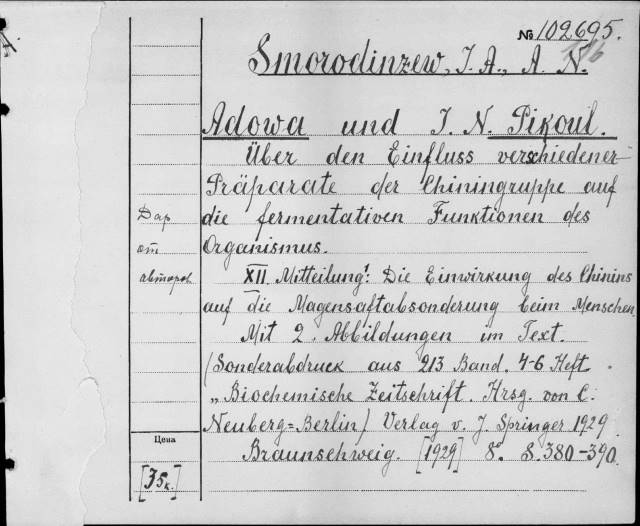 № 102695.
Smorodinzew, I. A., A. N.
Adowa und I. N. Pikoul.
Über den Einfluss verschiedener
Präparate der Chiningruppe auf
die fermentativen Funktionen des
Organismus.
XII. Mitteilung: Die Einwirkung des Chinins
auf die Magensaftabsonderung beim Menschen.
Mit 2. Abbildungen im Text.
(Sonderabdruck aus 213 Band. 4-6 Heft.
„Biochemische Zeitschrift. Hrsg. von C.
Neuberg=Berlin) Verlag v. J. Springer 1929
Braunschweig. [1929] 8°. S. 380-390.
Дар
от
авторов
Цена
[75к.]